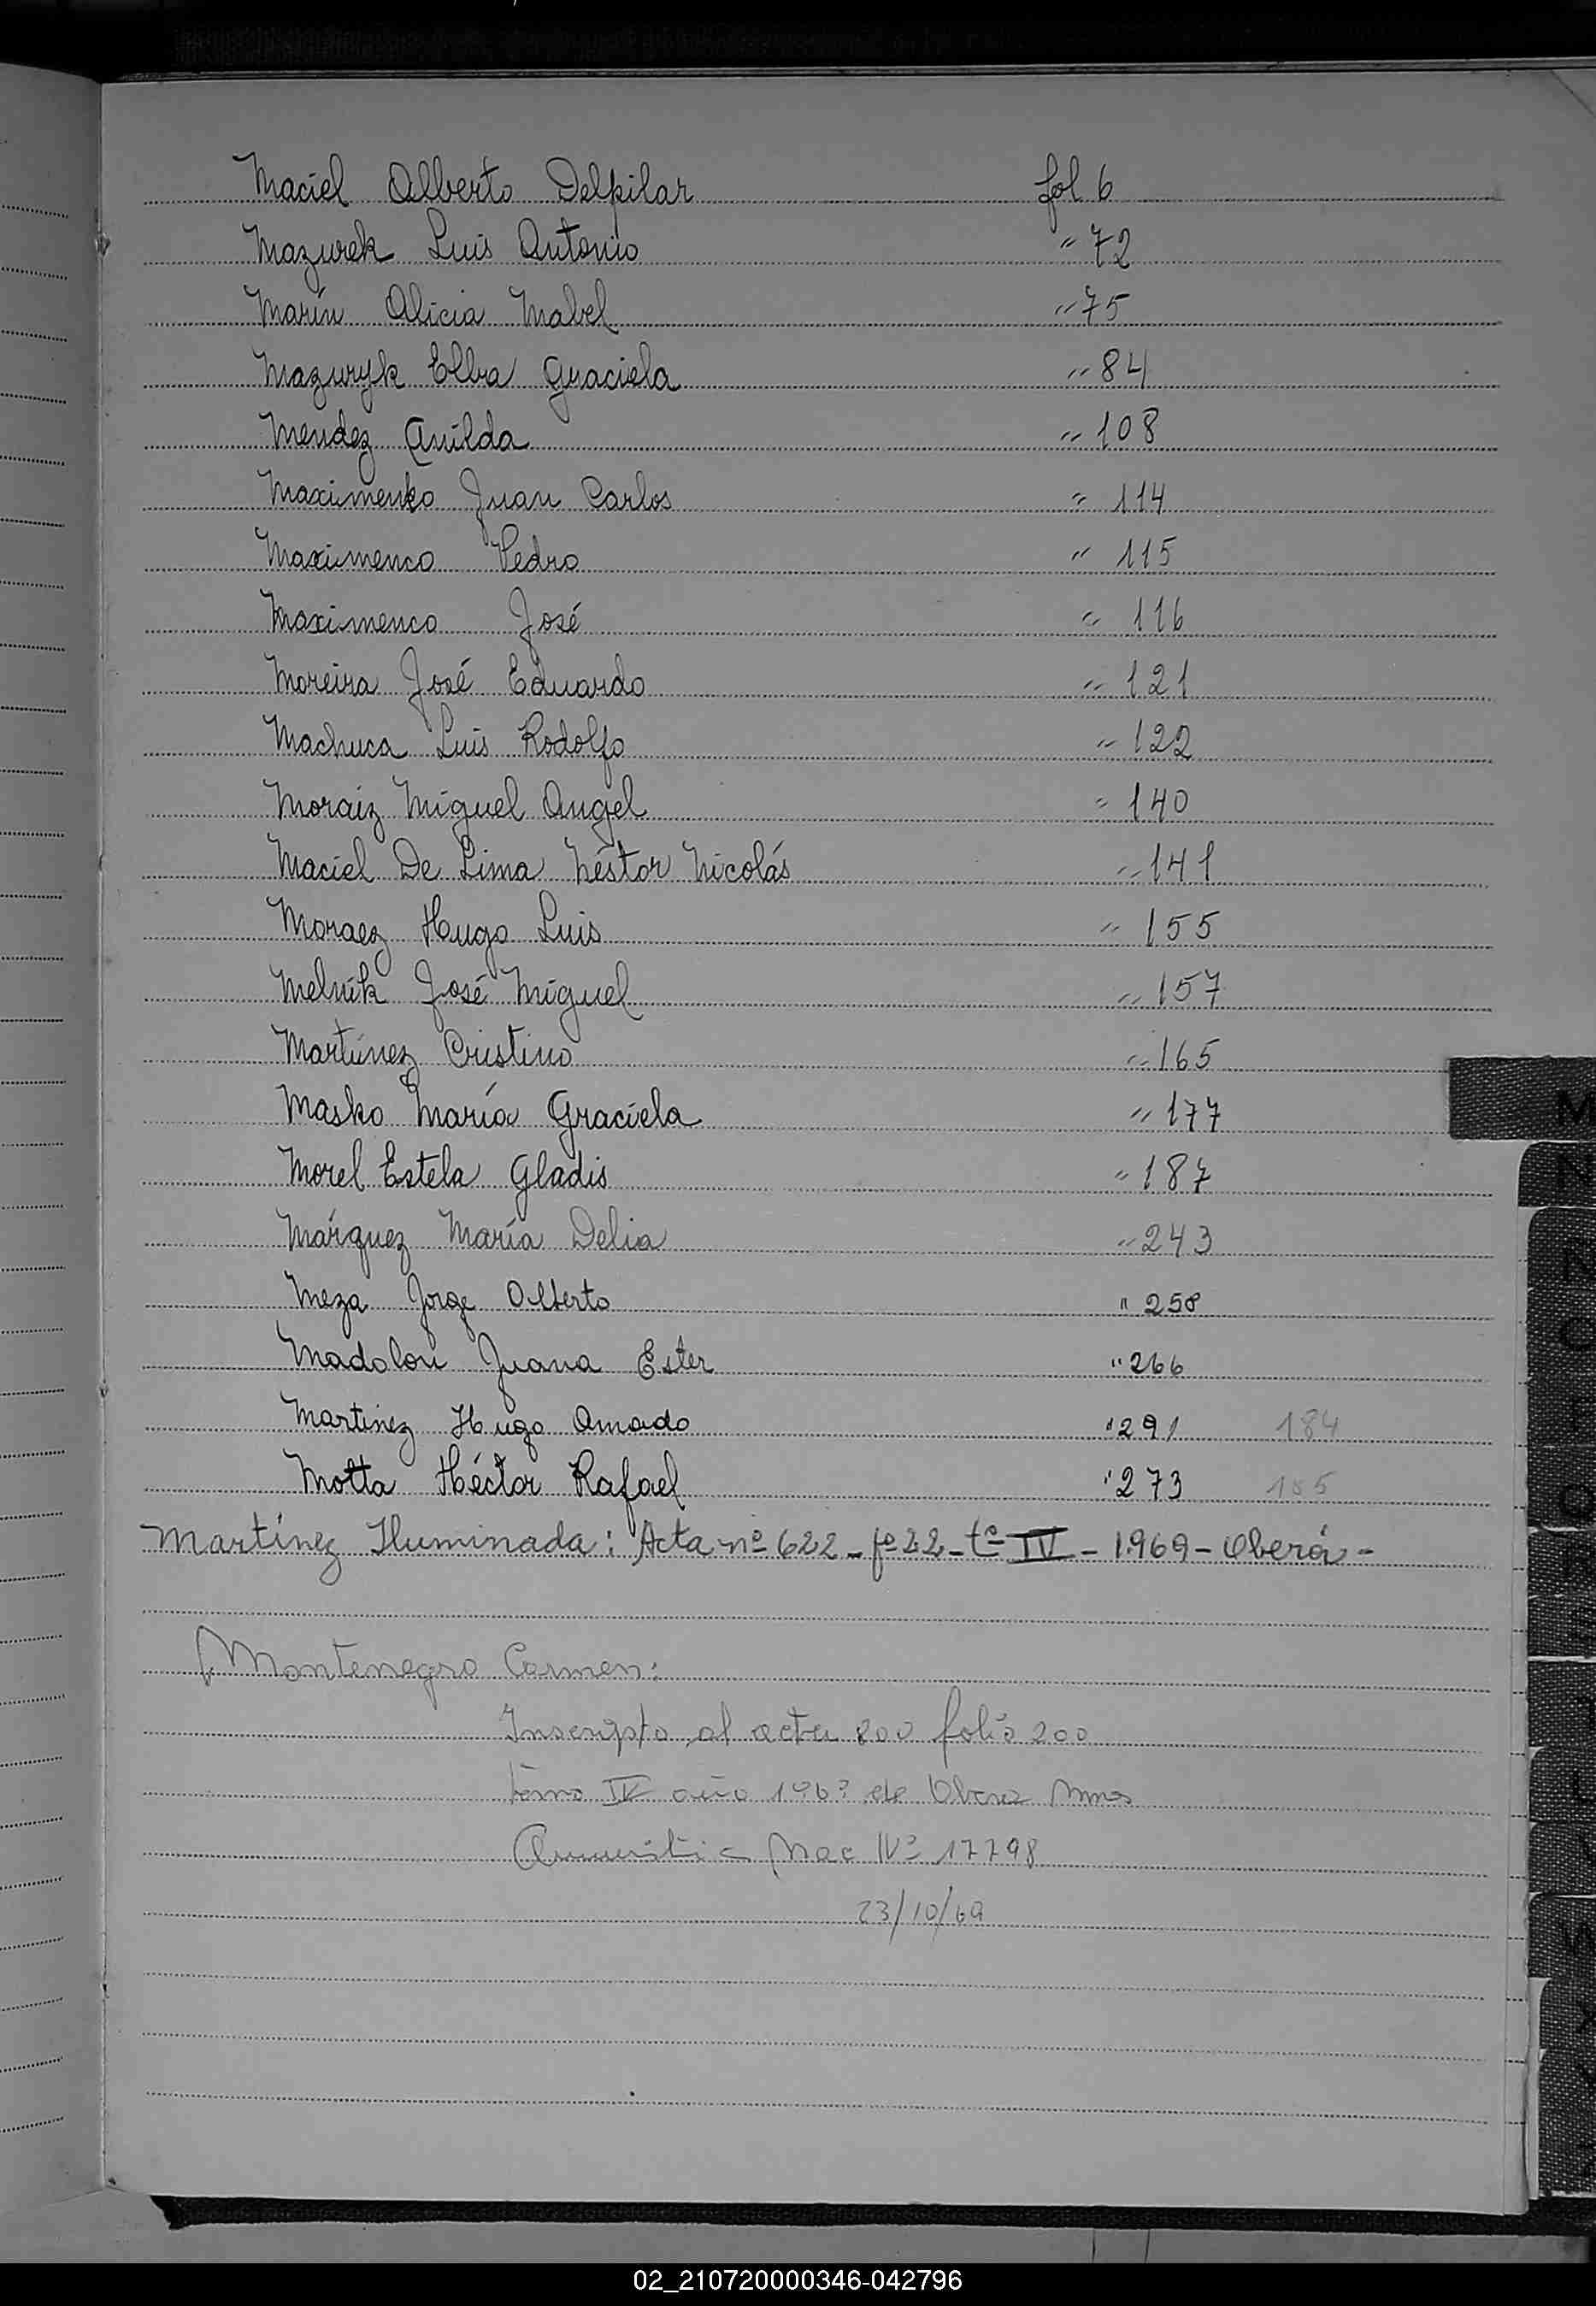 Maciel Alberto Delpilar fol 6
Mazurek Luis Antonio " 72
Marín Alicia Mabel " 75
Mazuryk Elba Graciela " 84
Mendez Anilda " 108
Maximenko Juan Carlos " 114
Maximenco Pedro " 115
Maximenco José " 116
Moreira José Eduardo " 121
Machuca Luis Rodolfo " 122
Moraiz Miguel Angel " 140
Maciel De Lima Néstor Nicolás " 141
Moraez Hugo Luis " 155
Melnik José Miguel " 157
Martínez Cristino " 165
Masko María Graciela " 177
Morel Estela Gladis " 187
Márquez María Delia " 243
Meza Jorge Alberto " 258
Madolon Juana Ester " 266
Martinez Hugo Amado " 291 184
Motta Héctor Rafael " 273
Martínez Iluminada: Acta nº 622 - fº 22 - tº IV - 1.969 - Oberá -
Montenegro Carmen:
Inscripto al acta 800 folio 200
tomo IV año de Obera Mnes
Nac Nº 17798
23/10/69
M
N
02_210720000346-042796